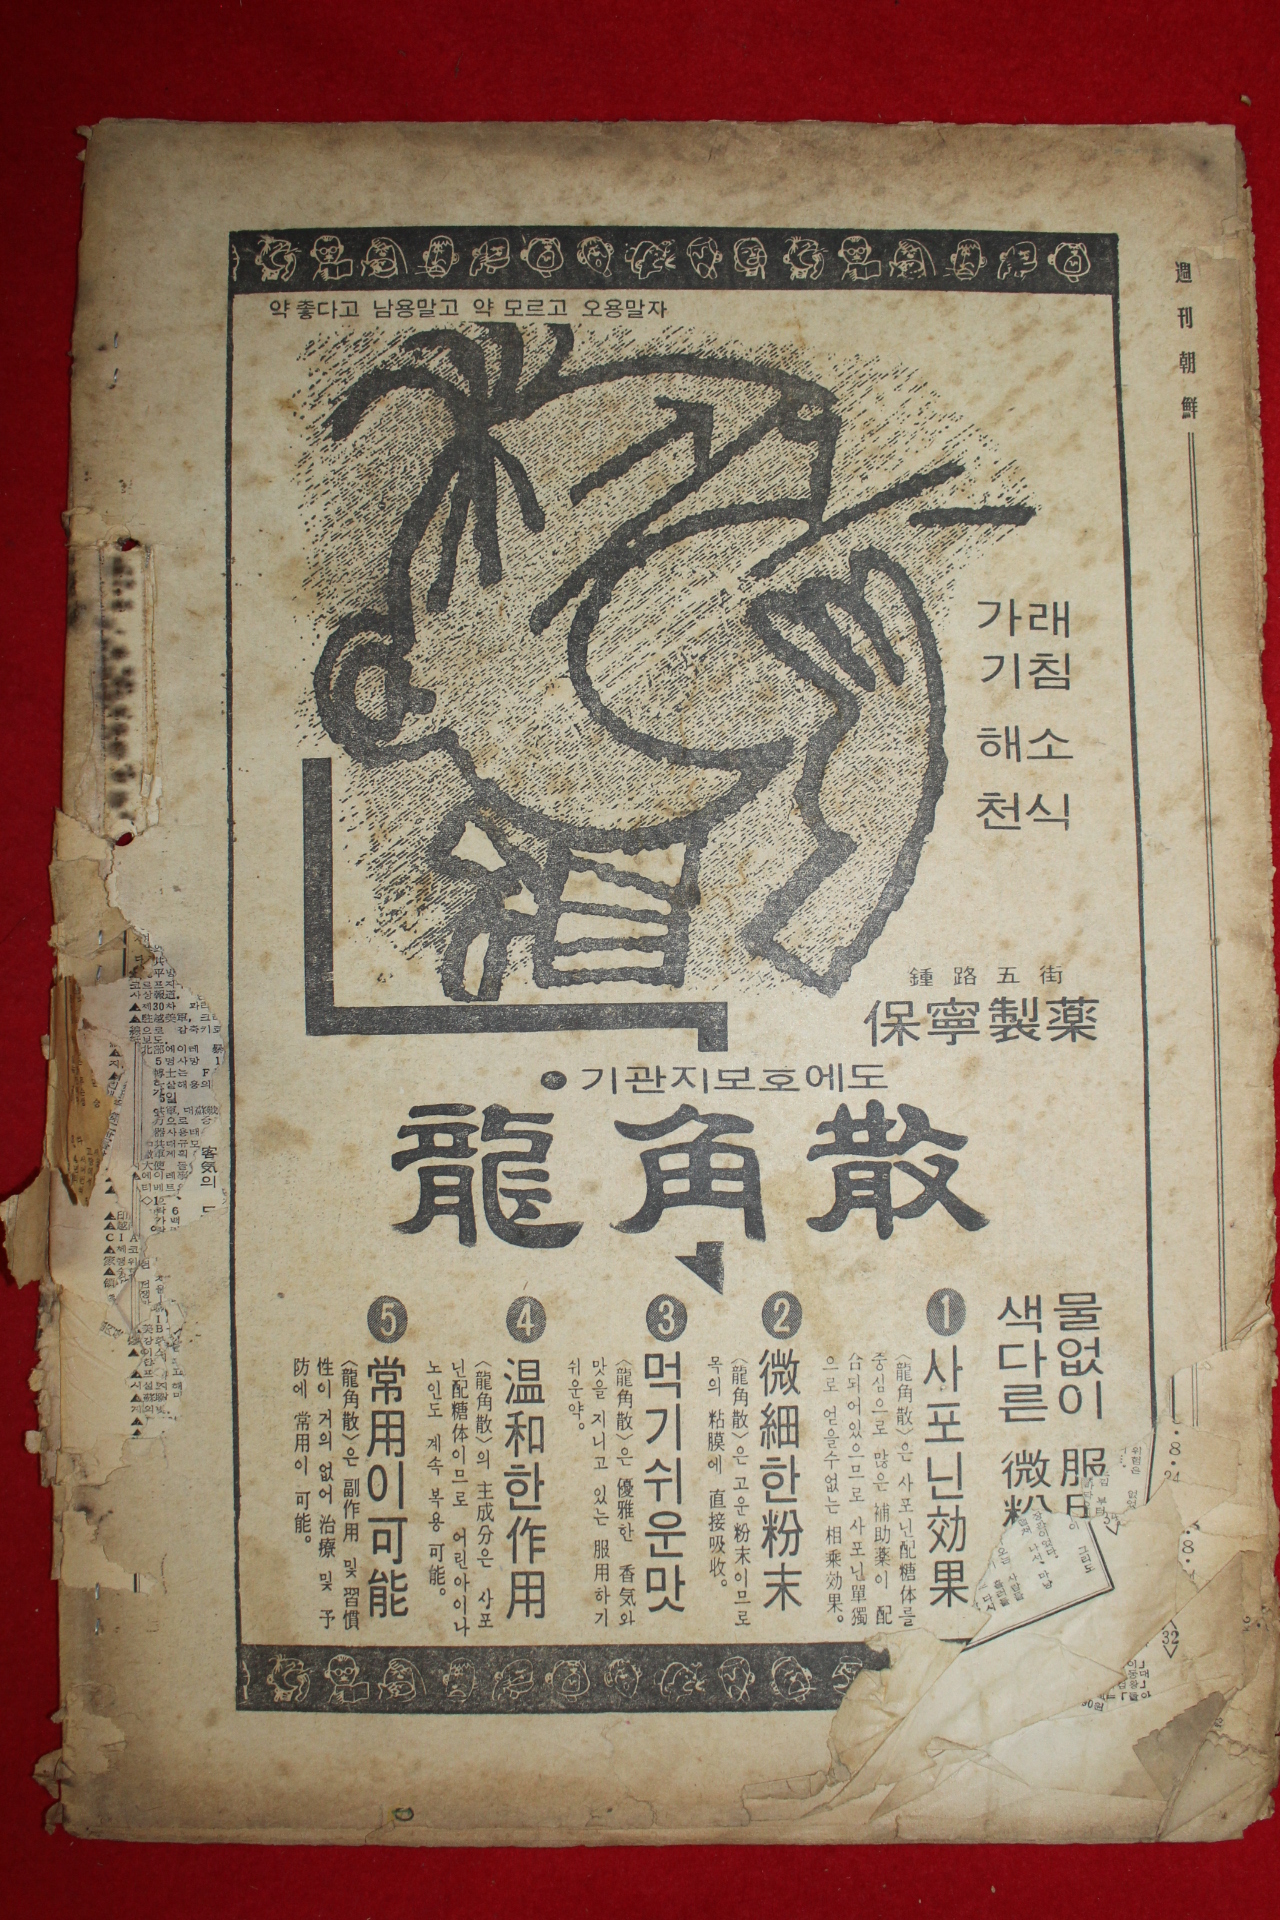 週刊朝鮮
약 좋다고 남용말고 약 모르고 오용말자
가래
기침
해소
천식
鍾路五街
保寧製薬
●기관지보호에도
龍角散
물없이 服用
색다른 微粉
1 사포닌効果
〈龍角散〉은 사포닌配糖体를
중심으로 많은 補助薬이 配
合되어있으므로 사포닌單獨
으로 얻을수없는 相乘効果。
2 微細한粉末
〈龍角散〉은 고운 粉末이므로
목의 粘膜에 直接吸收。
3 먹기쉬운맛
〈龍角散〉은 優雅한 香気와
맛을 지니고 있는 服用하기
쉬운약。
4 温和한作用
〈龍角散〉의 主成分은 사포
닌配糖体이므로 어린아이나
노인도 계속 복용 可能。
5 常用이可能
〈龍角散〉은 副作用 및 習慣
性이 거의 없어 治療 및 予
防에 常用이 可能。
32